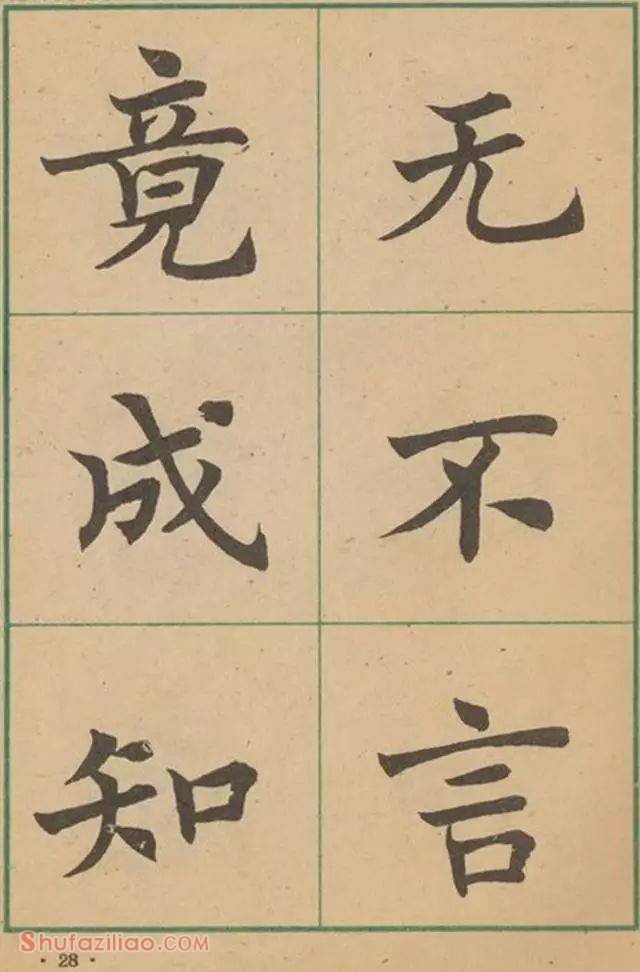 无不言
竟成知
Shufaziliao.com
· 28 ·